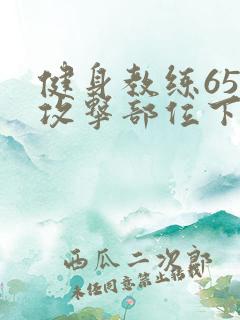 健身教练65
攻击部位下
西瓜二次郎
未经同意禁止转载